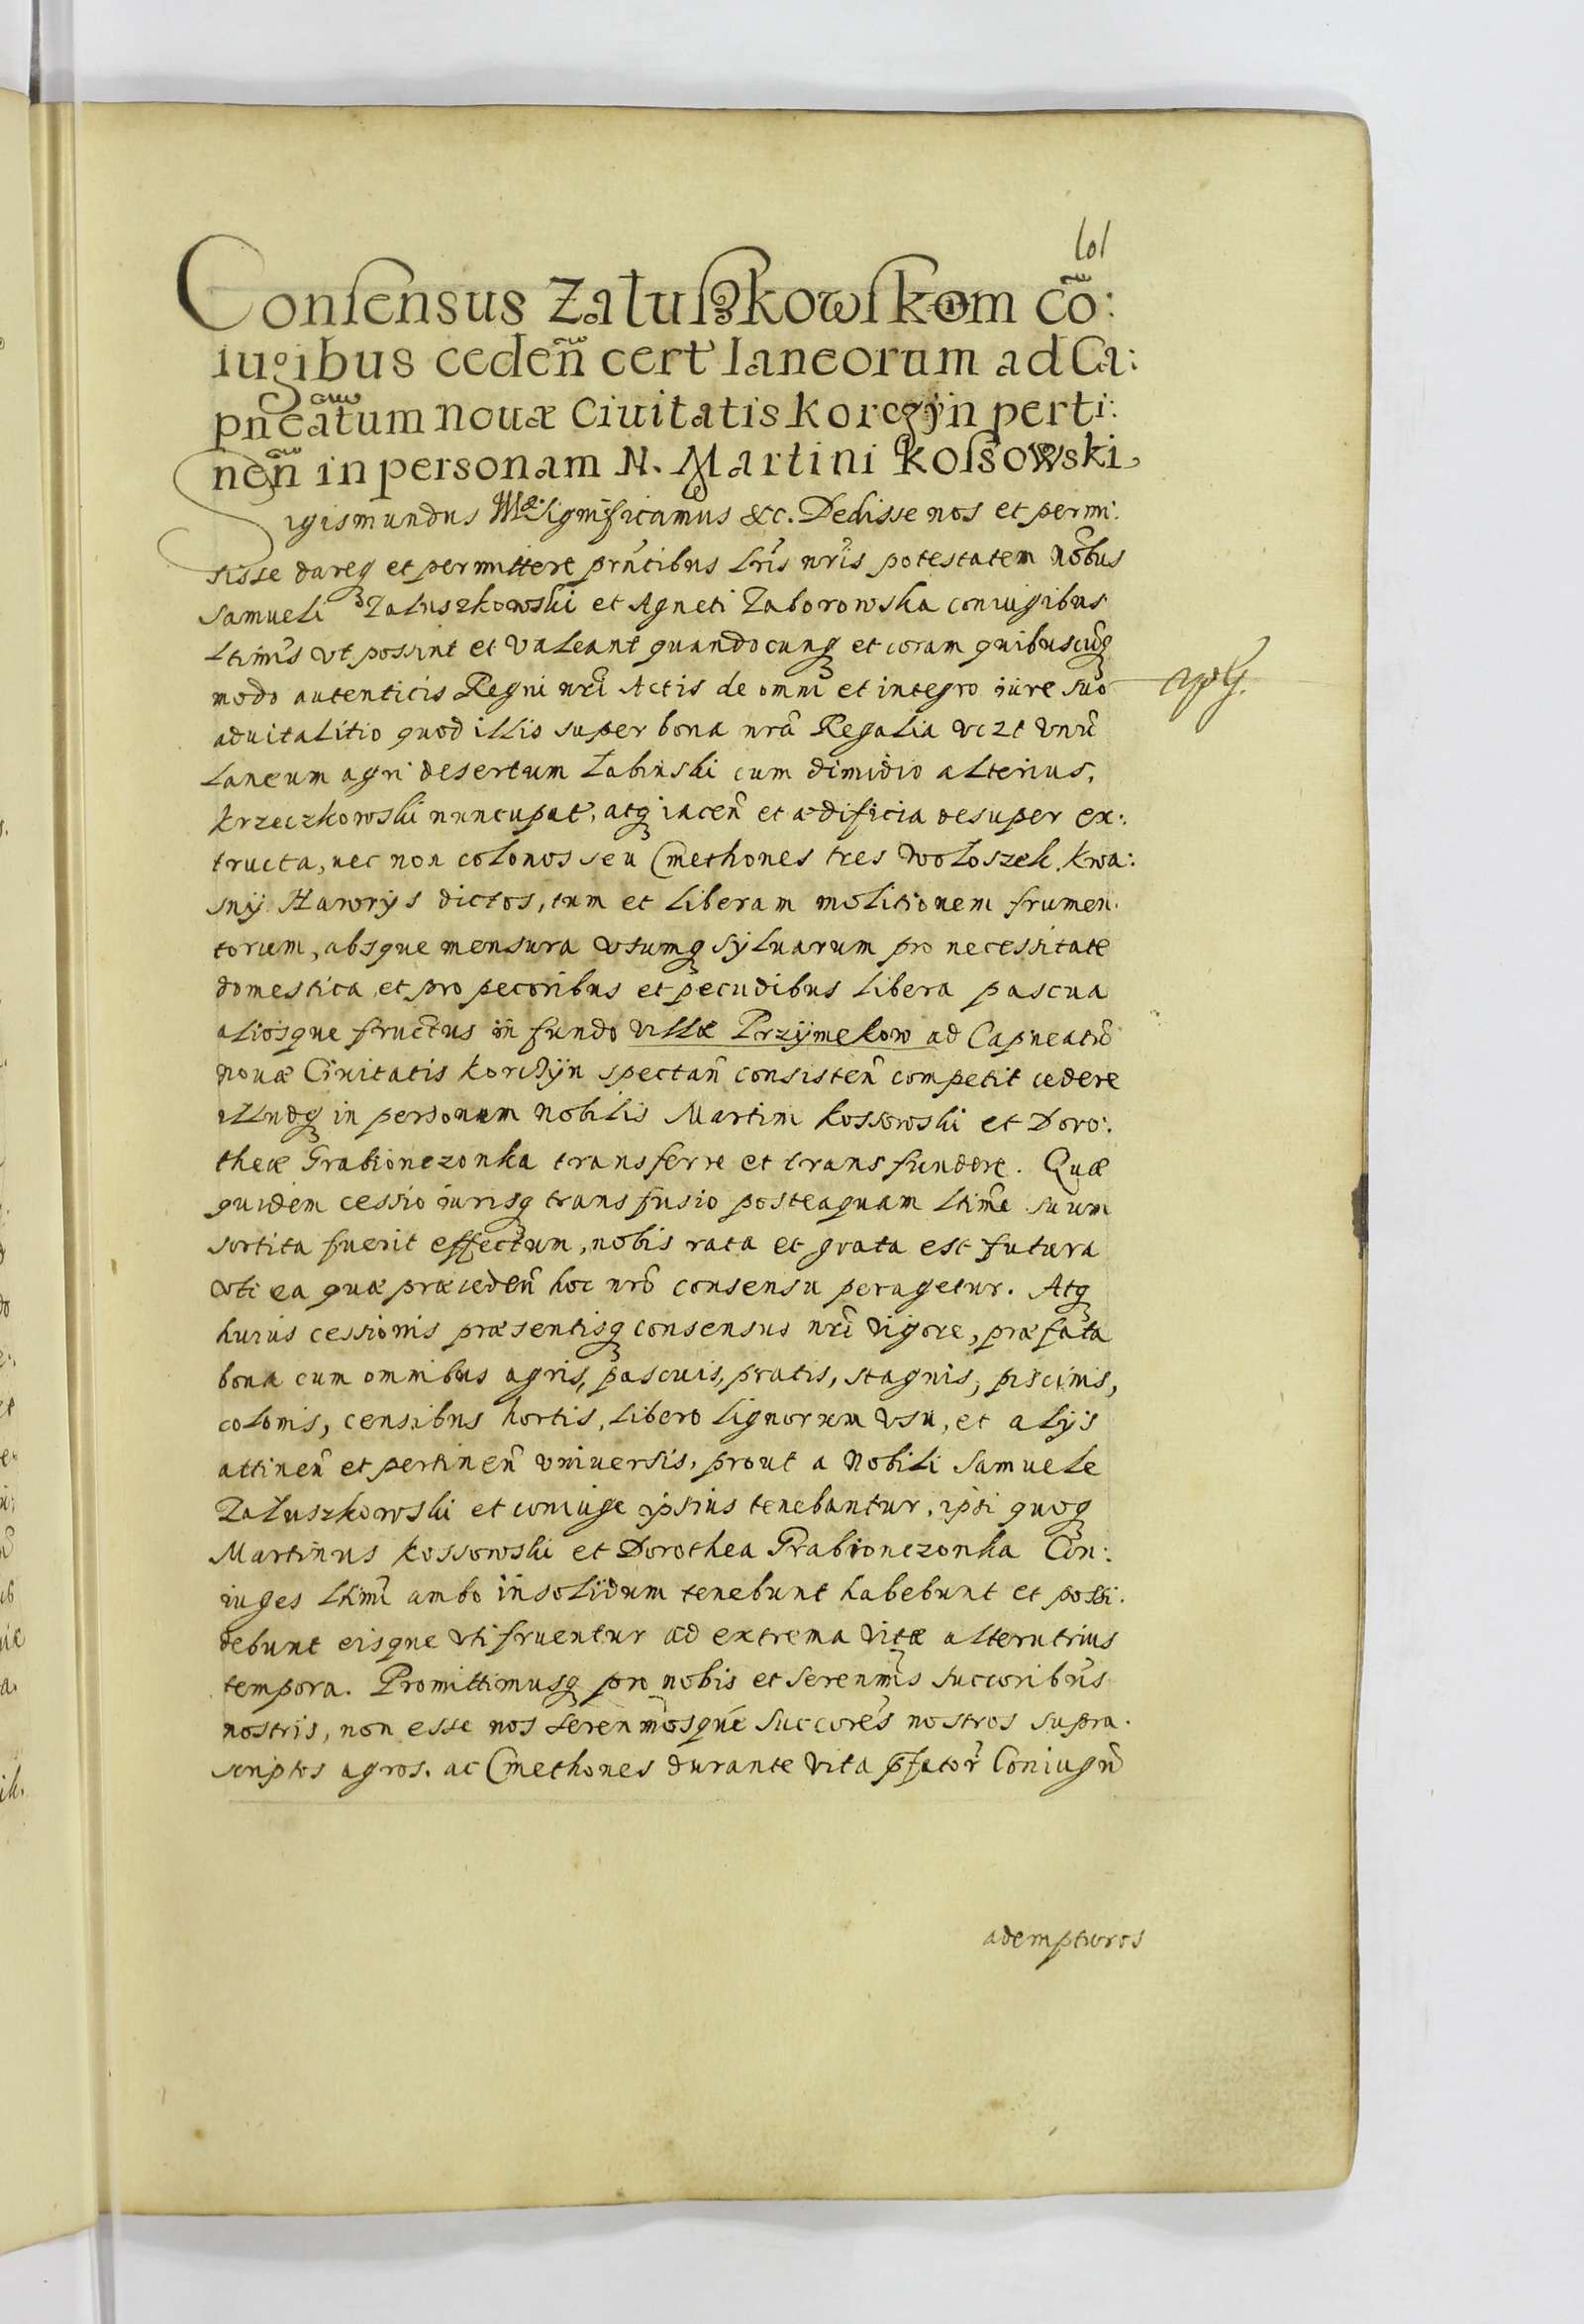 101
Consensus Załuszkowskom cõ:
iugibus cedeñ cert' laneorum ad Ca:
pneatum nouæ Ciuitatis Korczÿn perti:
neñ in personam N. Martini Kossowski,
Sigismundus III significamus &c. Dedisse nos et permi:
sisse dareq et permittere prñtibus lris nris potestatem Nobus
Samueli Załuszkowski et Agneti Zaborowska coniugibus
Ltimis vt possint et valeant quandocunq et coram quibuscũq
modo autenticis Regni nri Actis de omni et integro iure suo
aduitalitio quod illis super bona nra Regalia vczt vnũ
Laneum agri desertum Łabinski cum dimidio alterius,
Krzeczkowski nuncupat, atq iaceñ et ædificia desuper ex:
tructa, nec non colonos seu Cmethones tres Wołoszek, Kwa:
snÿ Hawrÿs dictos, tum et liberam molitionem frumen:
torum, absque mensura vsumq sÿluarum pro necessitate
domestica et pro pecoribus et pecudibus libera pascua
aliosque fructus in fundo villæ Przÿmekow ad Capneatũ
nouæ Ciuitatis Korczÿn spectañ consisteñ competit cedere
illudq in personam nobilis Martini Kossowski et Doro:
theæ Grabionczonka transferre et transfundere. Quæ
quidem cessio iurisq transfusio posteaquam Ltime suum
sortita fuerit effectum, nobis rata et grata est futura
vti ea quæ præcedeñ hoc nro consensu peragetur. Atq
huius cessionis præsentisq consensus nri vigore, præfata
bona cum omnibus agris, pascuis, pratis, stagnis, piscinis,
colonis, censibus hortis, libero lignorum vsu, et alÿs
attineñ et pertineñ vniuersis, prout a Nobili Samuele
Załuszkowski et coniuge ipsius tenebantur, ipsi quoq
Martinus Kossowski et Dorothea Grabionczonka Con:
iuges Ltimi ambo insolidum tenebunt habebunt et possi:
debunt eisque vti fruentur ad extrema vitæ alterutrius
tempora. Promittimusq pro nobis et Serenmis succoribus
nostris, non esse nos Serenmosque Succores nostros supra:
scriptos agros, ac Cmethones durante vita pfator Coniugũ
adempturos